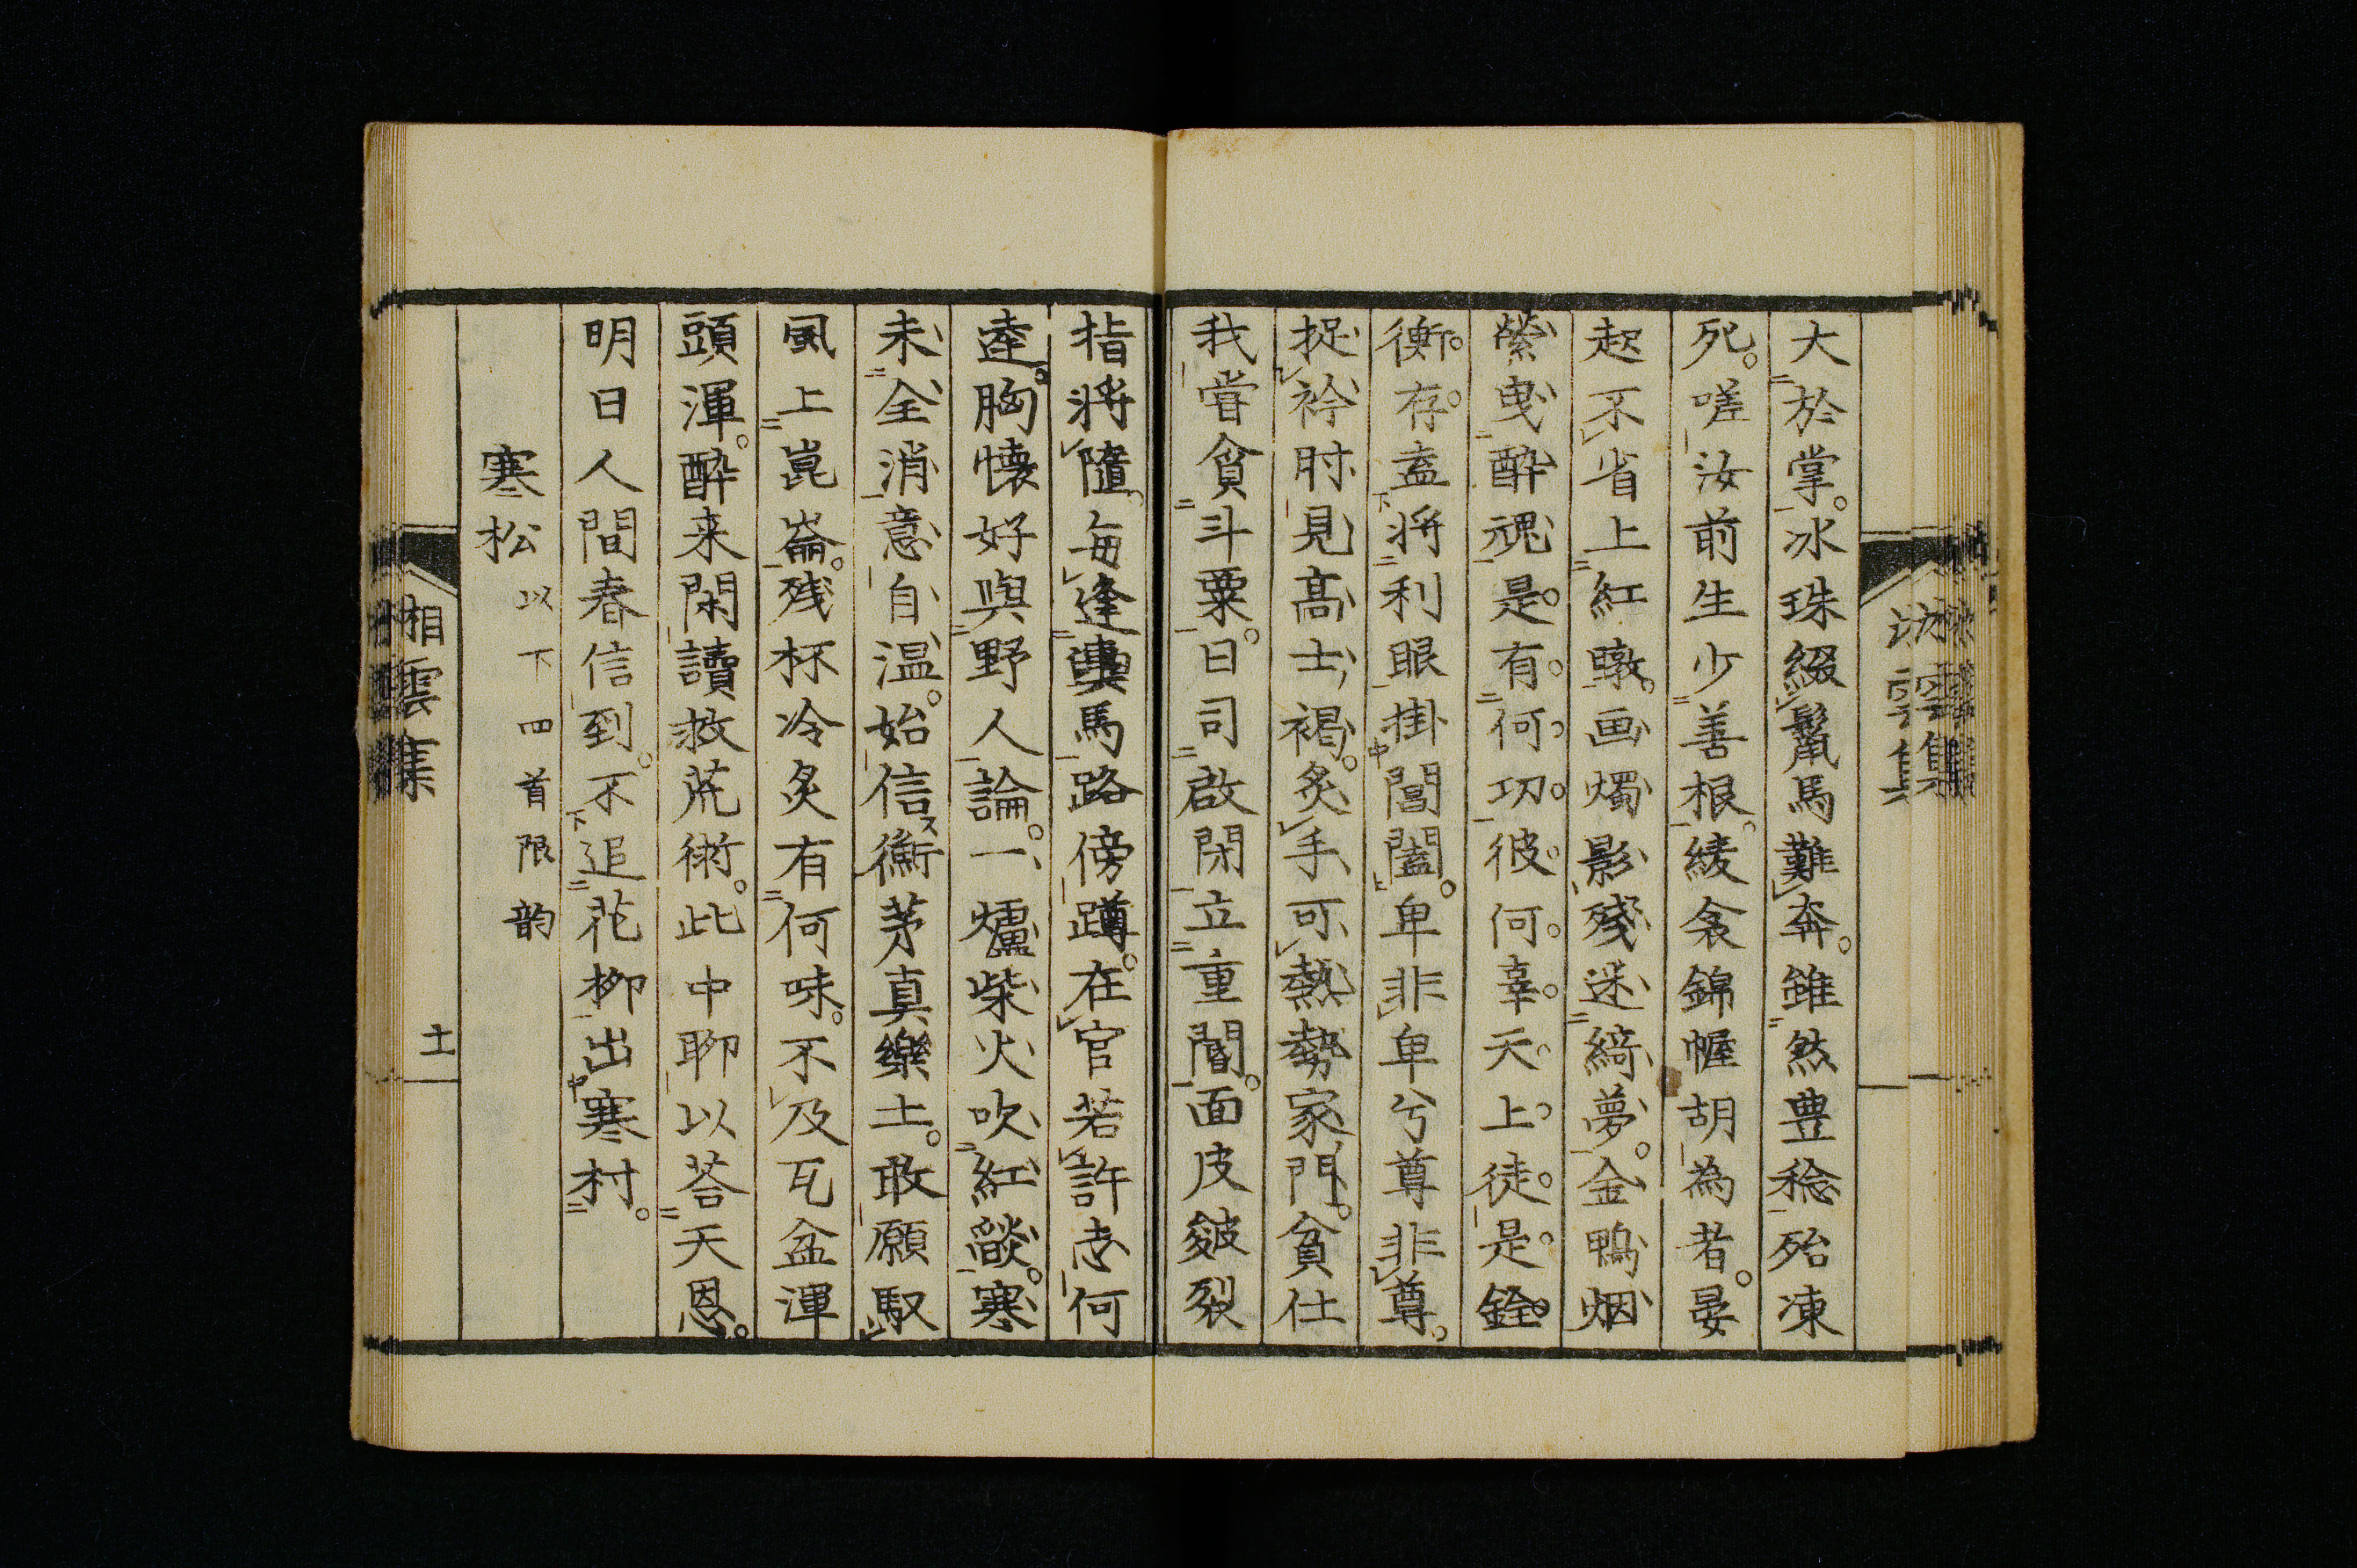 大於掌。冰珠綴鬣馬難奔。雖然豊稔殆凍
死。嗟汝前生少善根。綾衾錦幄胡為者。晏
起不省上紅暾。画燭影殘迷綺夢。金鴨烟
縈曳醉魂。是有何功彼何辜。天上徒是銓
衡存。盍將利眼掛閶闔。卑非卑兮尊非尊。
捉衿肘見高士褐。炙手可熱勢家門。貧仕
我嘗貪斗粟。日司啟閉立重閽。面皮皴裂
指將墮。每逢輿馬路傍蹲。在官若許志何
逹。胸懐好與野人論。一爐柴火吹紅燄。寒
未全消意自温。始信衡茅真樂土。敢願馭
風上崑崙。殘杯冷炙有何味。不及瓦盆渾
頭渾。酔来閑讀救荒術。此中聊以荅天恩。
明日人間春信到。不追花柳出寒村。
寒松 以下四首限韵
湘雲集
十一